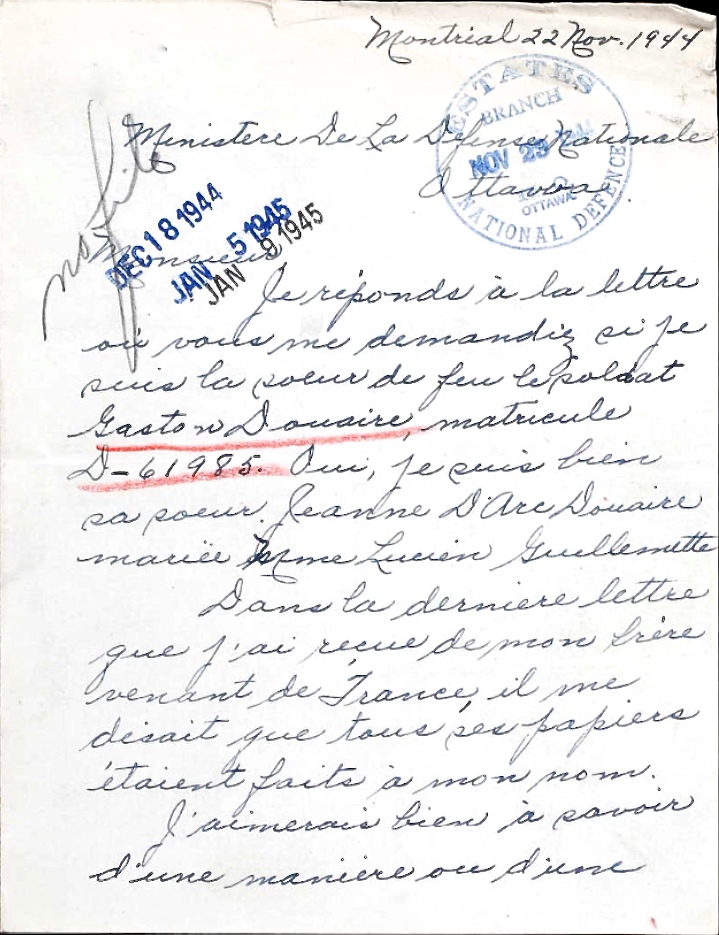 Montréal 22 Nov. 1944
ESTATES
BRANCH
NOV 23 1944
OTTAWA
NATIONAL DEFENCE
Ministere De La Defense Nationale
Ottawa.
no file
DEC 18 1944
JAN 5 1945
JAN 9 1945
Monsieur
Je réponds à la lettre
où vous me demandiz si je
suis la soeur de feu le soldat
Gaston Douaire, matricule
D-61985. Oui, je suis bien
sa soeur. Jeanne D'Arc Douaire
mariée Mme Lucien Guillemette
Dans la derniere lettre
que j'ai reçue de mon frère
venant de France, il me
disait que tous ses papiers
étaient faits à mon nom.
J'aimerais bien à savoir
d'une manière ou d'une